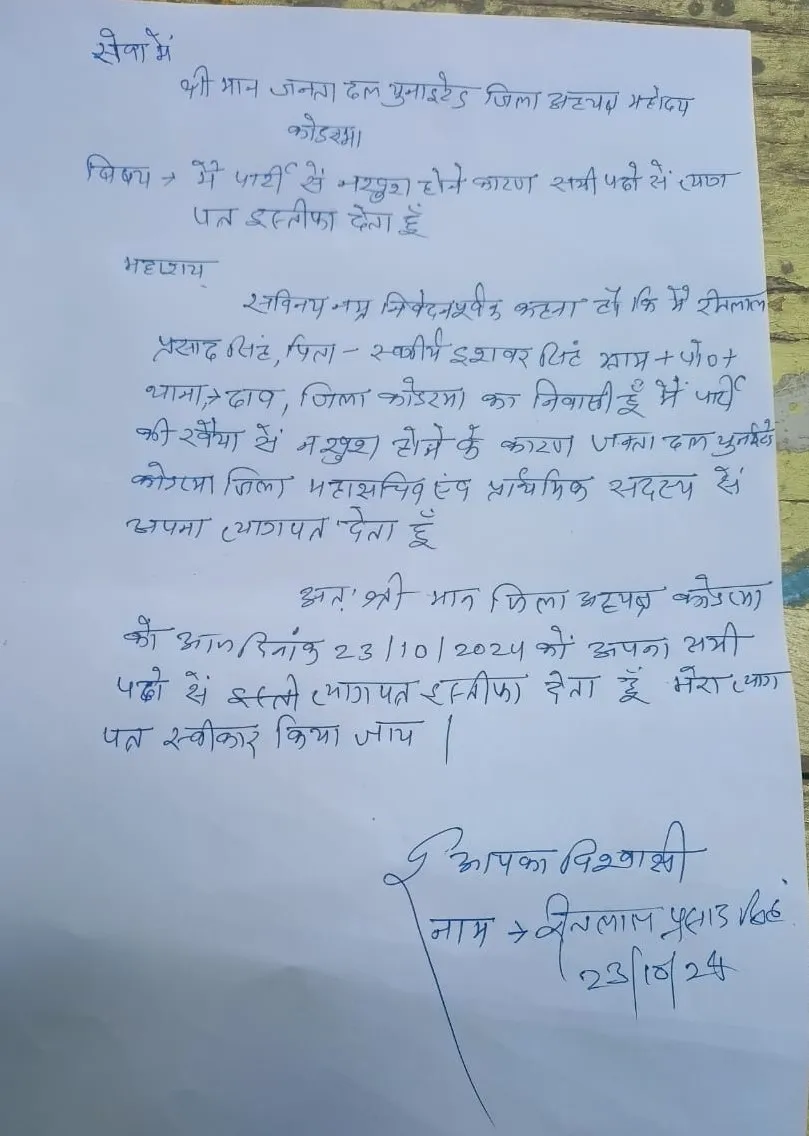 सेवा में
श्री मान जनता दल युनाइटेड जिला अध्यक्ष महोदय
कोडरमा
विषय → मै पार्टी सें नाखुश होने कारण सभी पदो सें त्याग
पत्र इस्तीफा देता हूँ
महाशय
सविनय नम्र निवेदनपूर्वक कहना हैं कि मै
प्रसाद सिंह, पिता - स्वर्गीय इशवर सिंह ग्राम + पो० +
थाना, जिला कोडरमा का निवासी हूँ मैं पार्टी
की रवैया सें नाखुश होने के कारण जनता दल युनाईटेड
कोडरमा जिला महासचिव एंव प्राथमिक सदस्य सें
अपना त्यागपत्र देता हूँ
अतः श्री मान जिला अध्यक्ष कोडरमा
को आज दिनांक 23/10/2024 कों अपना सभी
पदो सें त्यागपत्र इस्तीफा देता हूँ मेरा त्याग
पत्र स्वीकार किया जाय |
आपका विश्वासी
नाम → प्रसाद सिंह
23/10/24